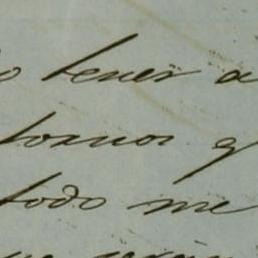 o tener a
tornos q
todo me